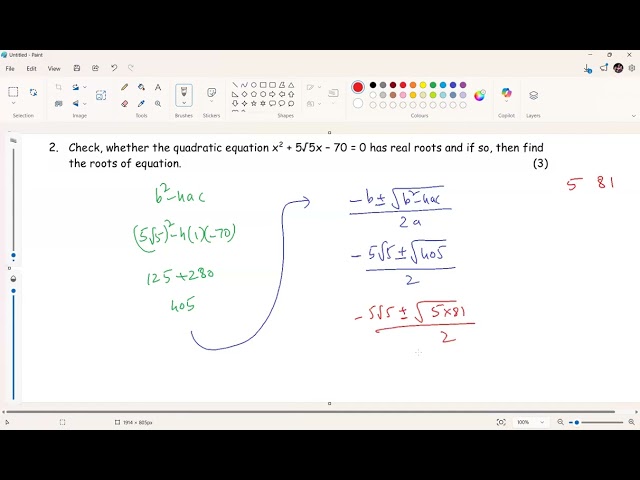 Untitled - Paint
File Edit View
Selection Image Tools Brushes Shapes Size Colors Copilot Layers
2. Check, whether the quadratic equation x² + 5√5x – 70 = 0 has real roots and if so, then find
the roots of equation. (3)
5 81
b²-4ac
(5√5)²-4(1)(-70)
125+280
405
-b±√b²-4ac
2a
-5√5±√405
2
-5√5±√5×81
2
1914 × 805px
100%